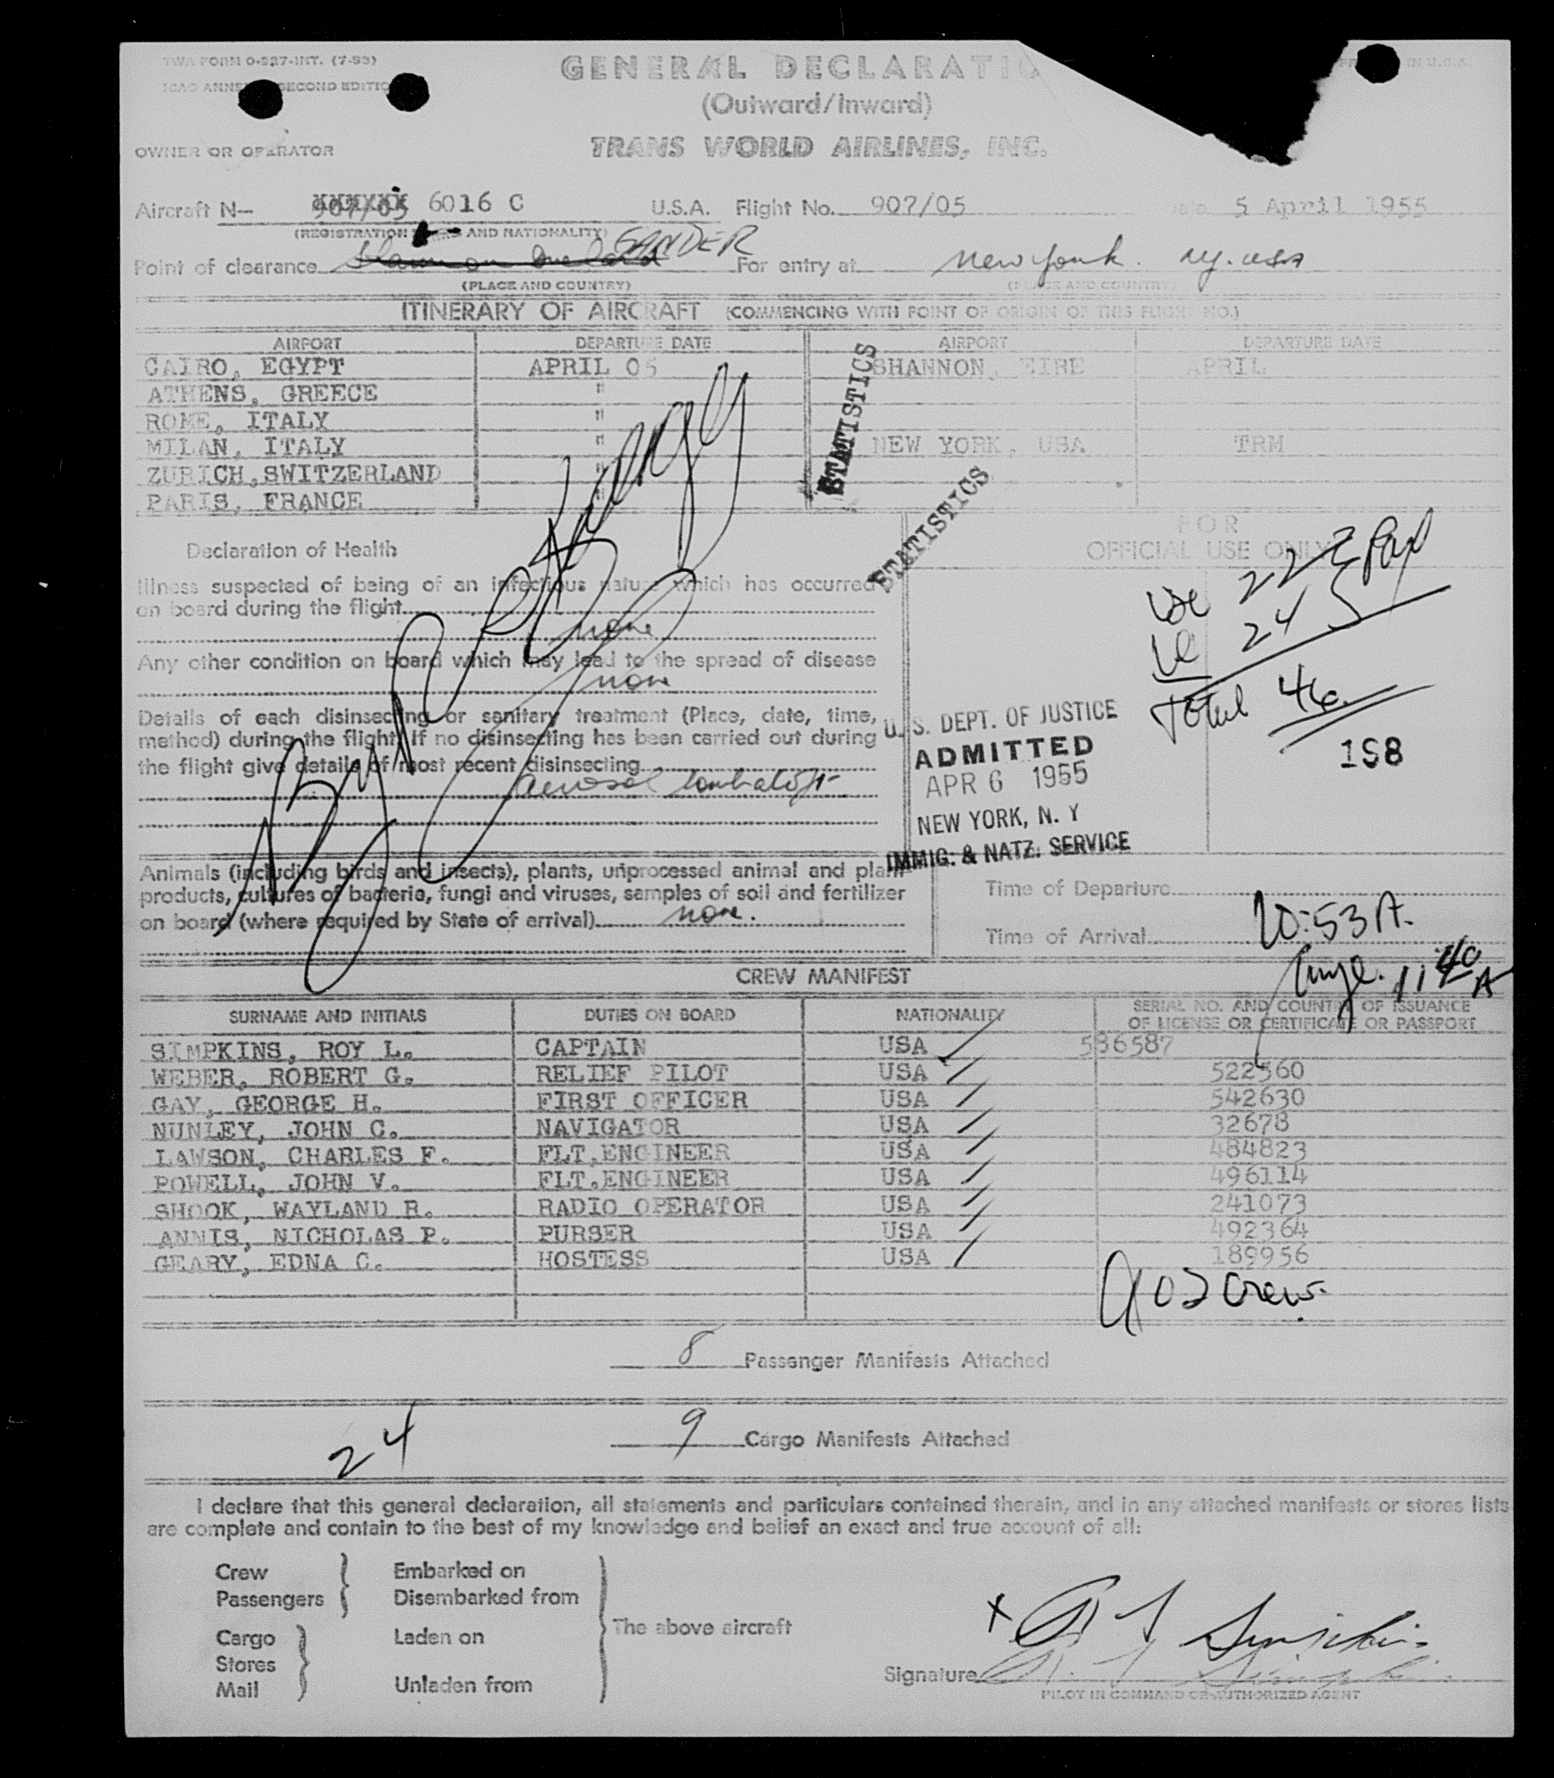 TWA FORM O-527-INT. (7-53)
ICAO ANNEX SECOND EDITION
IN U.S.A.
GENERAL DECLARATIO
(Outward/Inward)
OWNER OR OPERATOR
TRANS WORLD AIRLINES, INC.
Aircraft N— 907/05 6016 C U.S.A. Flight No. 907/05 Date 5 April 1955
(REGISTRATION AND NATIONALITY)
Point of clearance GANDER For entry at New York. NY. USA
(PLACE AND COUNTRY) (PLACE AND COUNTRY)
ITINERARY OF AIRCRAFT (COMMENCING WITH POINT OF ORIGIN OF THIS FLIGHT NO.)
AIRPORT DEPARTURE DATE AIRPORT DEPARTURE DATE
CAIRO, EGYPT APRIL 05 SHANNON, EIRE APRIL
ATHENS, GREECE "
ROME, ITALY "
MILAN, ITALY " NEW YORK, USA TRM
ZURICH, SWITZERLAND "
PARIS, FRANCE "
STATISTICS
STATISTICS
Declaration of Health
Illness suspected of being of an infectious nature which has occurred
on board during the flight
none
Any other condition on board which may lead to the spread of disease
none
Details of each disinsecting or sanitary treatment (Place, date, time,
method) during the flight. If no disinsecting has been carried out during
the flight give details of most recent disinsecting
aerosol
Animals (including birds and insects), plants, unprocessed animal and plant
products, cultures of bacteria, fungi and viruses, samples of soil and fertilizer
on board (where required by State of arrival) none.
FOR
OFFICIAL USE ONLY
Total 46
198
U. S. DEPT. OF JUSTICE
ADMITTED
APR 6 1955
NEW YORK, N. Y
IMMIG. & NATZ. SERVICE
Time of Departure
Time of Arrival 10:53 A.
11 40 A
CREW MANIFEST
SURNAME AND INITIALS DUTIES ON BOARD NATIONALITY SERIAL NO. AND COUNTRY OF ISSUANCE OF LICENSE OR CERTIFICATE OR PASSPORT
SIMPKINS, ROY L. CAPTAIN USA 536587
WEBER, ROBERT G. RELIEF PILOT USA 522560
GAY, GEORGE H. FIRST OFFICER USA 542630
NUNLEY, JOHN C. NAVIGATOR USA 32678
LAWSON, CHARLES F. FLT.ENGINEER USA 484823
POWELL, JOHN V. FLT.ENGINEER USA 496114
SHOOK, WAYLAND R. RADIO OPERATOR USA 241073
ANNIS, NICHOLAS P. PURSER USA 492364
GEARY, EDNA C. HOSTESS USA 189956
Crew.
8 Passenger Manifests Attached
24
9 Cargo Manifests Attached
I declare that this general declaration, all statements and particulars contained therein, and in any attached manifests or stores lists
are complete and contain to the best of my knowledge and belief an exact and true account of all:
Crew Embarked on
Passengers Disembarked from
The above aircraft
Cargo Laden on
Stores
Mail Unladen from
Signature
PILOT IN COMMAND OR AUTHORIZED AGENT